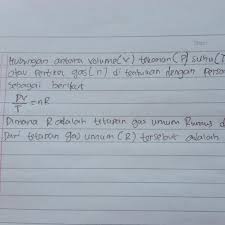 Hubungan antara volume (V) tekanan (P) suhu (T
atau pentira gas (n) ditentukan dengan Persa
sebagai berikut
PV
T = nR
Dimana R adalah tetapan gas umum Rumus d
Dari tetapan gas umum (R) tersebut adalah